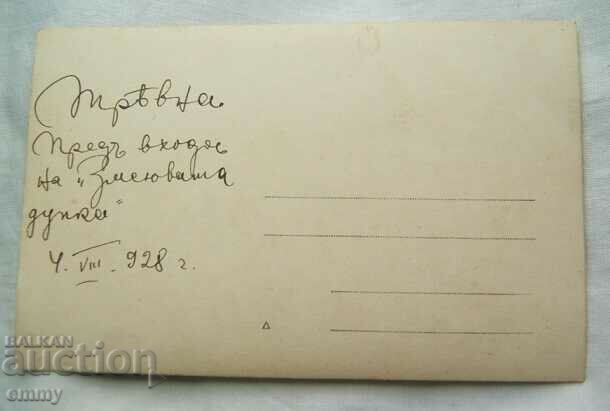 Трѣвна.
Предъ входа
на "Змеювата
дупка"
4. VIII. 928 г.
BALKAN
auction
emmy